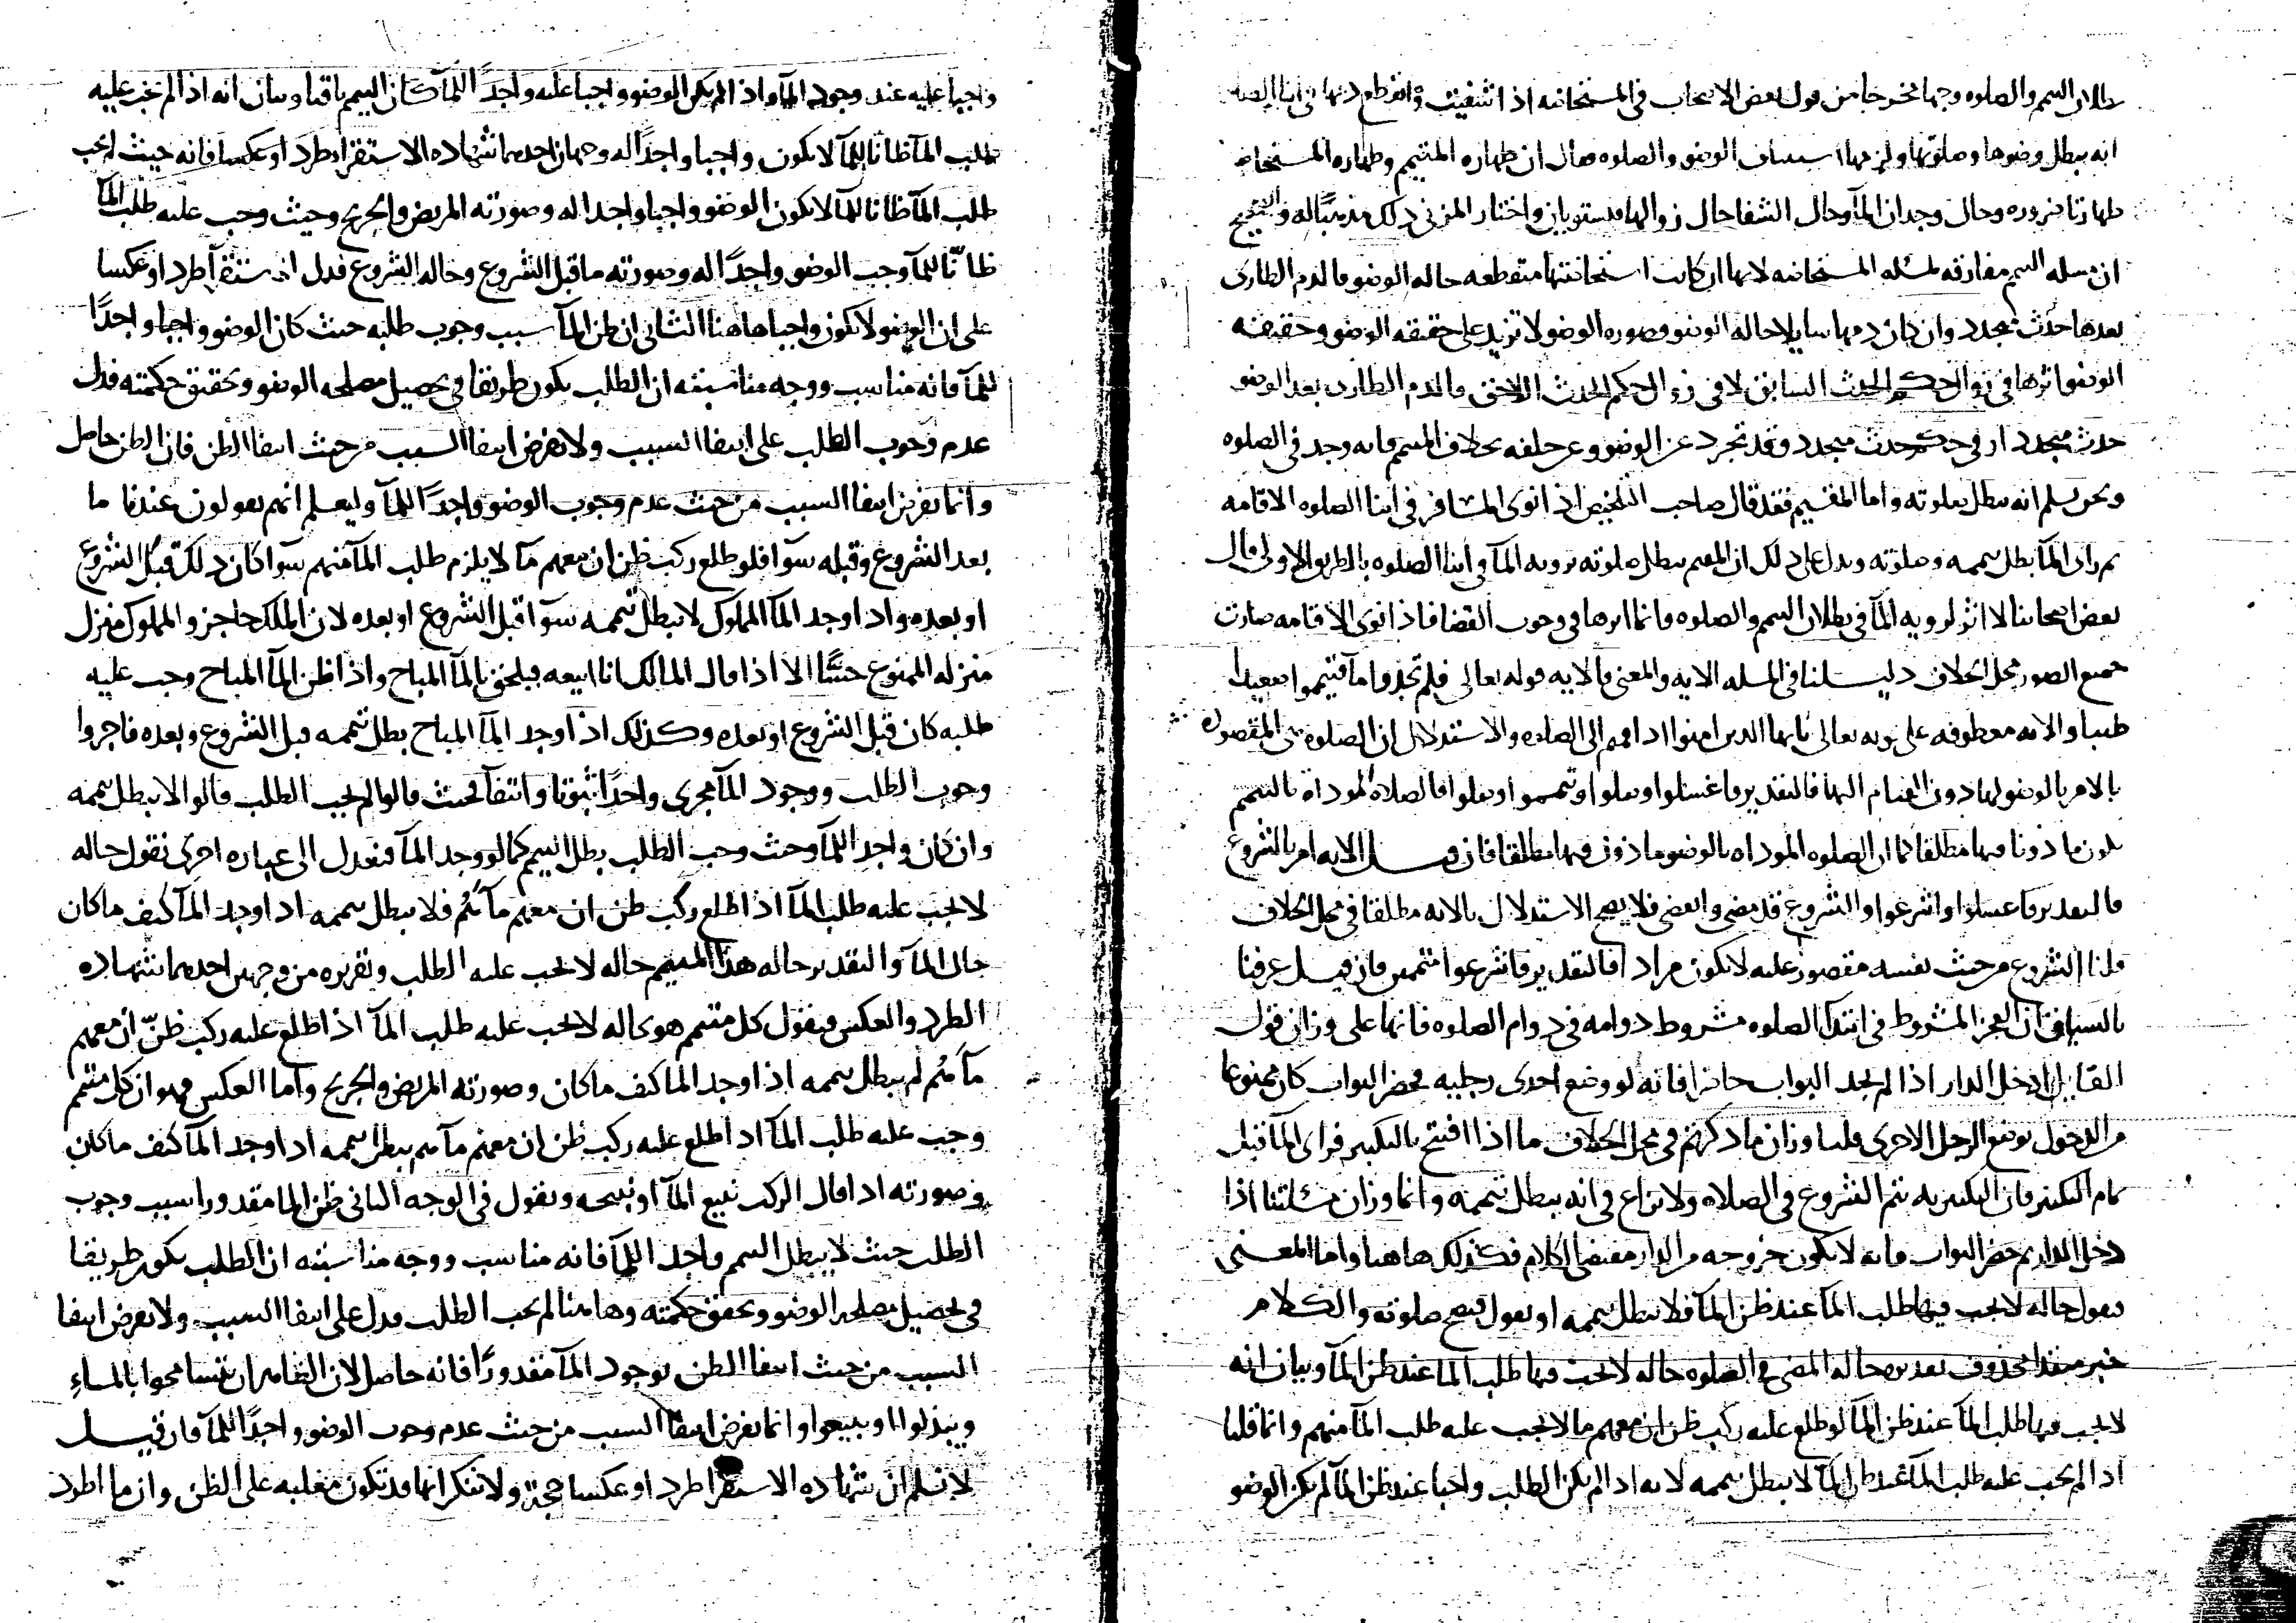 بطلان التيمم والصلوه وجها مخرجا من قول بعض الاصحاب في المستحاضه اذا شفيت وانقطع دمها في اثنا الصلوه
انه يبطل وضوها وصلوتها ولزمها استيناف الوضو والصلوه وقال ان طهاره المتيمم وطهاره المستحاضه
طهارتا ضروره وحال وجدان المآ وحال الشفا حال زوالها مستويان واختار المزني ذلك مذهبًا له والصحيح
ان مسله التيمم مفارقه لمسله المستحاضه لانها ان كانت استحاضتها متقطعه حاله الوضو فالدم الطارى
بعدها حدث متجدد وان كان دمها سايلا حاله الوضو فصوره الوضو لا تزيد على حقيقه الوضو وحقيقه
الوضو اثرها في زوال حكم الحدث السابق لا في زوال حكم الحدث اللاحق فالدم الطارى بعد الوضو
حدث متجدد او في حكم حدث متجدد وقد تجرد عن الوضو وعن خلفه بخلاف التيمم فانه وجد في الصلوه
ونحن نسلم انه تبطل صلوته واما المقيم فقد قال صاحب التلخيص اذا نوى المسافر في اثنا الصلوه الاقامه
ثم راى المآ بطل تيممه وصلوته ويدل على ذلك ان المقيم تبطل صلوته برويه المآ في اثنا الصلوه بالطريق الاولى قال
بعض اصحابنا لا اثر لرويه المآ في بطلان التيمم والصلوه وانما اثرها في وجوب القضا فاذا نوى الاقامه صارت
جميع الصور محل الخلاف دليلنا في المسله الايه والمعنى فالايه قوله تعالى فلم تجدوا مآ فتيمموا صعيدا
طيبا والايه معطوفه على قوله تعالى يايها الدين امنوا اذا قمتم الى الصلوه والاستدلال ان الصلوه هي المقصوده
بالامر بالوضو لها دون القيام اليها فالتقدير فاغسلوا وصلوا او تيمموا وصلوا فالصلاه الموداه بالتيمم
يكون ماذونا فيها مطلقا كما ان الصلوه الموداه بالوضو ماذون فيها مطلقا فان قيل الايه امر بالشروع
فالتقدير فاغسلوا واشرعوا والشروع قد مضى وانقضى فلا يصح الاستدلال بالايه مطلقا في محل الخلاف
قلنا الشروع من حيث نفسه مقصور عليه لا يكون مرادا فالتقدير فاشرعوا متممين فان قيل عرفنا
بالسياق ان العجز المشروط في ابتدآ الصلوه مشروط دوامه في دوام الصلوه فانها على وزان قول
القايل ادخل الدار اذا لم تجد البواب حاضرا فانه لو وضع احدى رجليه فحضر البواب كان ممنوعا
من الدخول بوضع الرجل الاخرى قلنا وزان ما ذكرتم في محل الخلاف ما اذا افتتح بالتكبير فراى المآ قبل
تمام التكبير فان التكبير به يتم الشروع في الصلاه ولا نزاع في انه يبطل تيممه وانما وزان مسئلتنا اذا
دخل الدار ثم حضر البواب فانه لا يكون خروجه من الدار مقتضى الكلام فكذلك هاهنا واما المعنى
نقول حاله لا يجب فيها طلب المآ عند ظن المآ فلا يبطل تيممه او نقول فتصح صلوته والكلام
خبر مبتدا محذوف تقديره حاله المضى في الصلوه حاله لا يجب فيها طلب المآ عند ظن المآ وبيان انه
لا يجب فيها طلب المآ عند ظن المآ لو طلع عليه ركب ظن ان معهم مآ لا يجب عليه طلب المآ منهم وانما قلنا
اذا لم يجب عليه طلب المآ عند ظن المآ لا يبطل تيممه لانه اذا لم يكن الطلب واجبا عند ظن المآ لم يكن الوضو
واجبا عليه عند وجود المآ واذا لم يكن الوضو واجبا عليه واجدًا للمآ كان التيمم باقيا وبيان انه اذا لم يجب عليه
طلب المآ ظانا للمآ لا يكون واجبا واجدًا له وجهان احدهما شهاده الاستقرا طردا وعكسا فانه حيث لم يجب
طلب المآ ظانا للمآ لا يكون الوضو واجبا واجدا له وصورته المريض والجريح وحيث وجب عليه طلب المآ
ظانًّا للمآ وجب الوضو واجدًا له وصورته ما قبل الشروع وحاله الشروع فدل الاستقرآ طردا وعكسا
على ان الوضو لا يكون واجبا هاهنا الثانى ان ظن المآ سبب وجوب طلبه حيث كان الوضو واجبا واجدًا
للمآ فانه مناسب ووجه مناسبته ان الطلب يكون طريقا في تحصيل مصلحه الوضو وتحقيق حكمته فدل
عدم وجوب الطلب على انتفا السبب ولا نفرض انتفا السبب من حيث انتفا الظن فان الظن حاصل
وانما نفرض انتفا السبب من حيث عدم وجوب الوضو واجدًا للمآ وليعلم انهم يقولون عندنا ما
بعد الشروع وقبله سوآ فلو طلع ركب ظن ان معهم مآ لا يلزم طلب المآ منهم سوآ كان ذلك قبل الشروع
او بعده واذا وجد المآ المملوك لا يبطل تيممه سوآ قبل الشروع او بعده لان الملك حاجز والمملوك منزل
منزله الممنوع حسًّا الا اذا قال المالك انا ابيعه فيلحق بالمآ المباح واذا ظن المآ المباح وجب عليه
طلبه كان قبل الشروع او بعده وكذلك اذا وجد المآ المباح بطل تيممه قبل الشروع وبعده فاجروا
وجوب الطلب ووجود المآ مجرى واحدًا ثبوتا وانتفآ فحيث قالوا لم يجب الطلب قالوا لا يبطل تيممه
وان كان واجد المآ وحيث وجب الطلب بطل التيمم كما لو وجد المآ فنعدل الى عباره اخرى نقول حاله
لا يجب عليه طلب المآ اذا طلع ركب ظن ان معهم مآ ثَم فلا يبطل تيممه اذا وجد المآ كيف ما كان
حال المآ والتقدير حاله هذا المتيمم حاله لا يجب عليه الطلب وتقريره من وجهين احدهما شهاده
الطرد والعكس فنقول كل متيمم هو بحاله لا يجب عليه طلب المآ اذا طلع عليه ركب ظنّ ان معهم
مآ ثَم لم يبطل تيممه اذا وجد المآ كيف ما كان وصورته المريض والجريح واما العكس فهو ان كل متيمم
وجب عليه طلب المآ اذا طلع عليه ركب ظن ان معهم مآ ثم يبطل تيممه اذا وجد المآ كيف ما كان
وصورته اذا قال الركب نبيع المآ او نبيحه ونقول في الوجه الثانى ظن المآ مقدورا سبب وجوب
الطلب حيث لا يبطل التيمم واجد المآ فانه مناسب ووجه مناسبته ان الطلب يكون طريقا
في تحصيل مصلحه الوضو وتحقق حكمته وهاهنا لم يجب الطلب فدل على انتفا السبب ولا نفرض انتفا
السبب من حيث انتفا الظن بوجود المآ مقدورًا فانه حاصل لان الظاهر ان يتسامحوا بالماءِ
ويبذلوا او يبيعوا وانما نفرض انتفا السبب من حيث عدم وجوب الوضو واجدًا للمآ فان قيل
لا نسلم ان شهاده الاستقرا طردا وعكسا حجة ولا ننكر انها قد تكون مغلبه على الظن وان ما اطرد